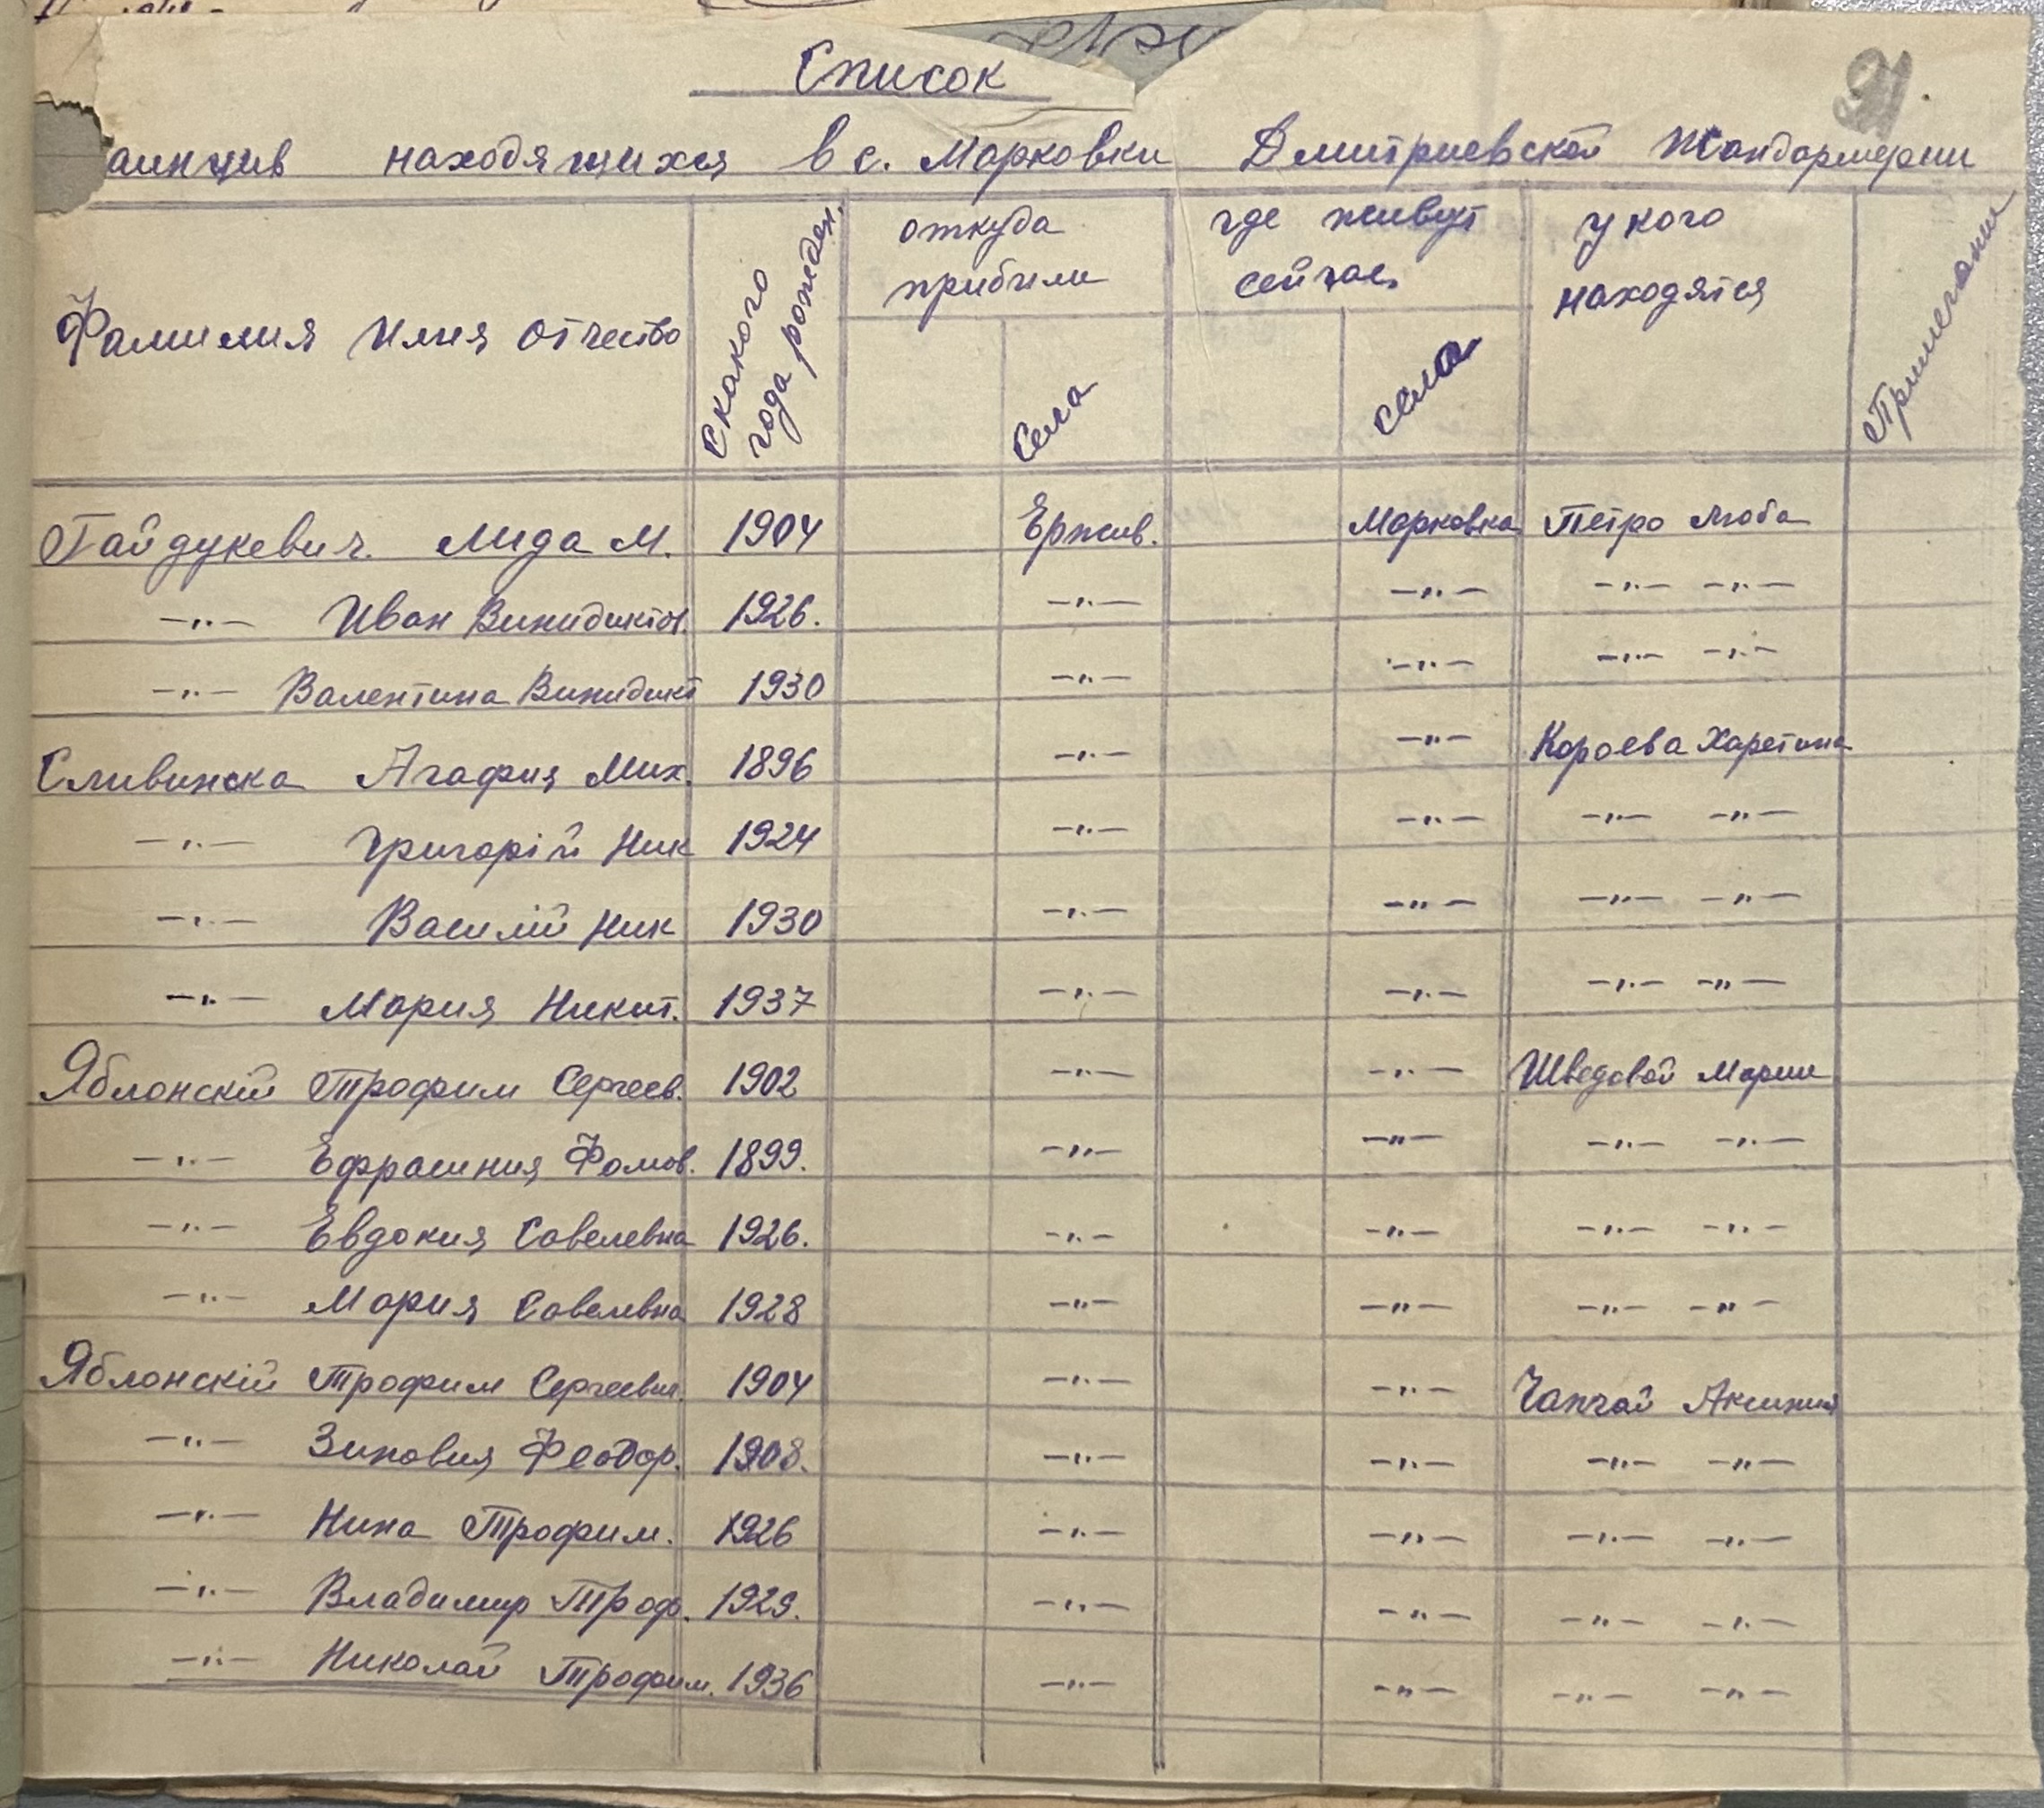 Список
аинцив находящихся в с. Марковки Дмитриевской Жандармерии
Фамилия Имя Отчество
С какого года рожден.
откуда прибили
Села
где живут сейчас
села
у кого находятся
Примечание
Гайдукевич Лида М. 1904 Ержив. Марковка Петро Люба
—"— Иван Винидиктов. 1926. —"— —"— —"— —"—
—"— Валентина Винидикт 1930 —"— —"— —"— —"—
Сливинска Агафия Мих. 1896 —"— —"— Короева Харетина
—"— Григорій Ник 1924 —"— —"— —"— —"—
—"— Василий Ник 1930 —"— —"— —"— —"—
—"— Мария Никит. 1937 —"— —"— —"— —"—
Яблонскій Трофим Сергеев. 1902 —"— —"— Шведовой Марии
—"— Ефрасиния Фомов. 1899. —"— —"— —"— —"—
—"— Евдокия Савелевна 1926. —"— —"— —"— —"—
—"— Мария Савелевна 1928 —"— —"— —"— —"—
Яблонскій Трофим Сергеевич. 1904 —"— —"— Чапчай Аксиния
—"— Зиновия Феодор. 1908. —"— —"— —"— —"—
—"— Нина Трофим. 1926 —"— —"— —"— —"—
—"— Владимир Троф. 1929. —"— —"— —"— —"—
—"— Николай Трофим. 1936 —"— —"— —"— —"—